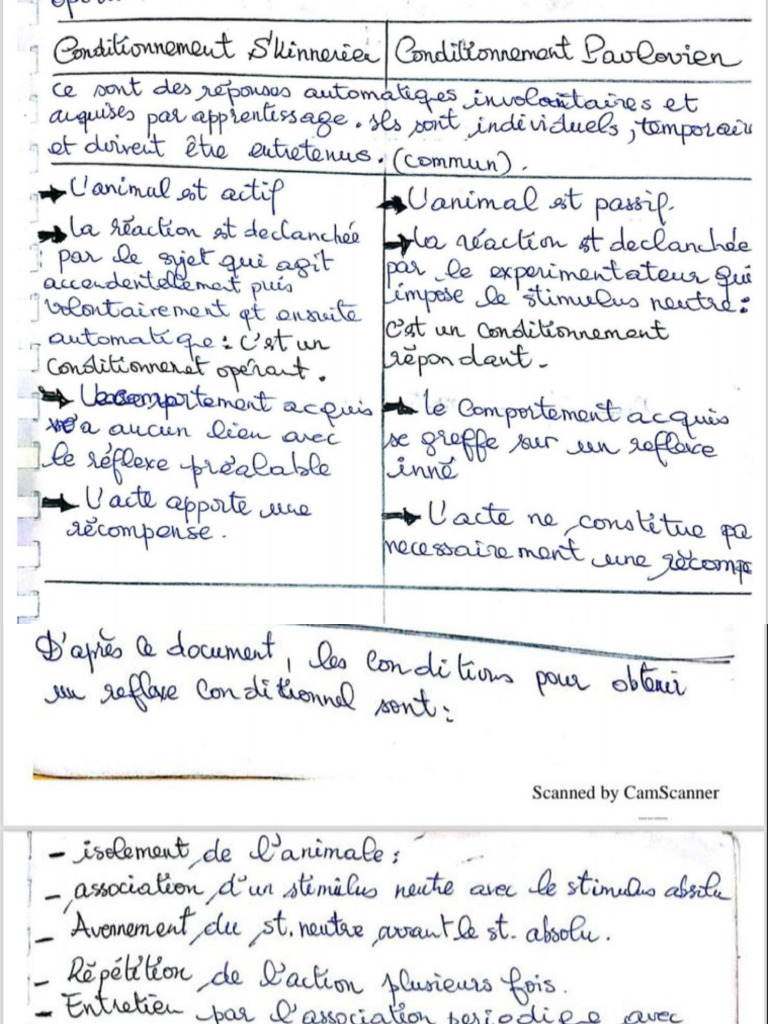 Conditionnement Skinnerien
Conditionnement Pavlovien
ce sont des réponses automatiques, involontaires et
acquises par apprentissage. Ils sont individuels, temporair
et doivent être entretenus. (commun).
→ L'animal est actif
→ La réaction est declanchée
par le sujet qui agit
accendentellement puis
volontairement et ensuite
automatique : c'est un
conditionneret opérant.
→ Le comportement acquis
n'a aucun lien avec
le réflexe préalable
→ L'acte apporte une
récompense.
→ L'animal est passif.
→ La réaction est declanchée
par le experimentateur qui
impose le stimulus neutre :
c'est un conditionnement
répondant.
→ le comportement acquis
se greffe sur un reflexe
inné
→ L'acte ne constitue pa
necessairement une récompe
D'après ce document, les conditions pour obtenir
un reflexe conditionnel sont :
Scanned by CamScanner
- isolement de l'animale :
- association d'un stimulus neutre avec le stimulus absolu
- Avennement du st. neutre avant le st. absolu.
- Répétition de l'action plusieurs fois.
- Entretien par l'association periodique avec